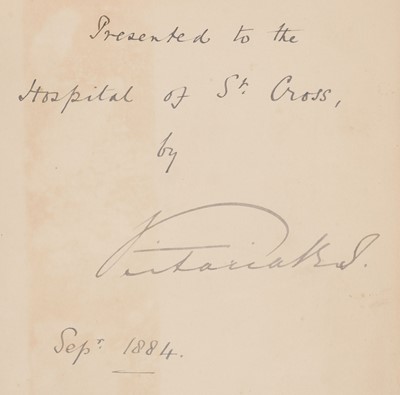 Presented to the
Hospital of St. Cross,
by
Victoria R I.
Sepr. 1884.